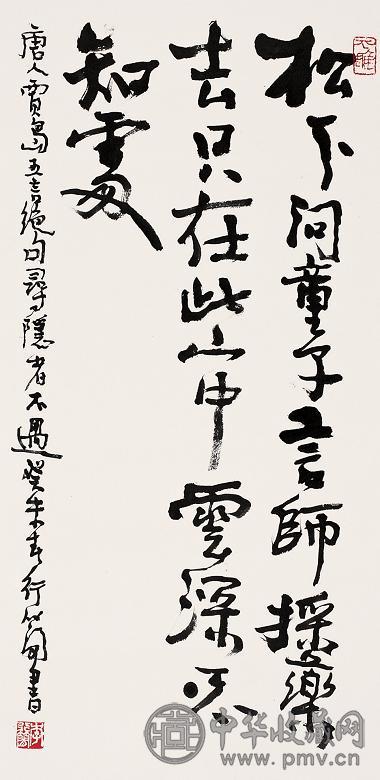 松下問童子言師採藥
去只在此山中雲深不
知處
唐人賈島五言絕句尋隱者不遇癸未春行簡書
中华收藏网
www.pmv.cn